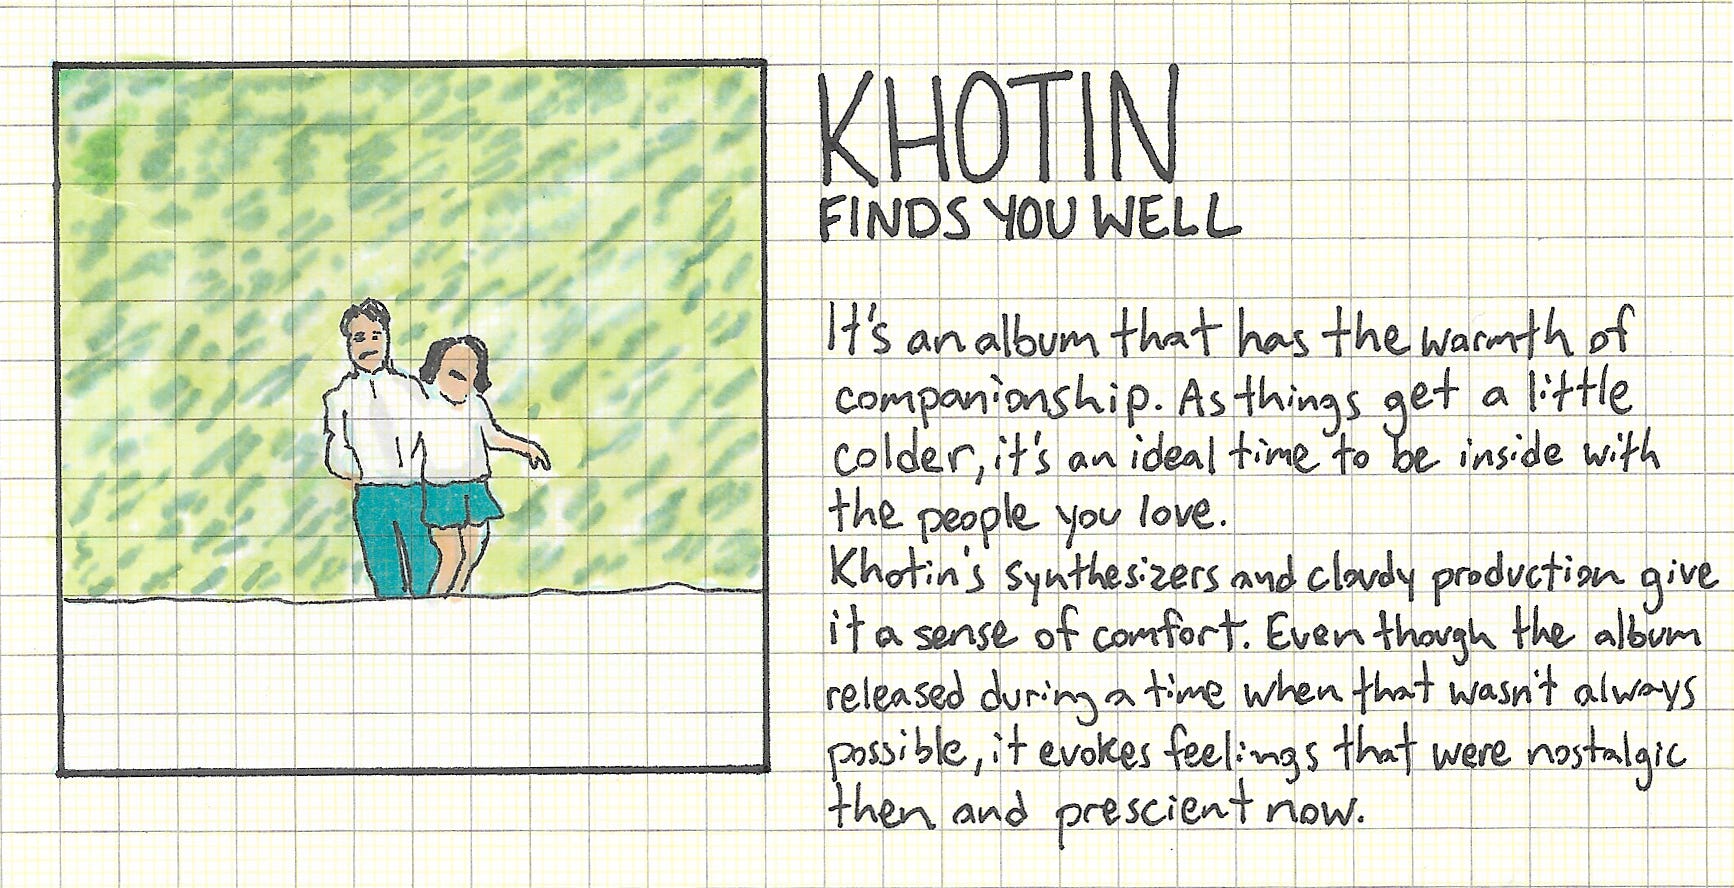 KHOTIN
FINDS YOU WELL
It's an album that has the warmth of
companionship. As things get a little
colder, it's an ideal time to be inside with
the people you love.
Khotin's synthesizers and cloudy production give
it a sense of comfort. Even though the album
released during a time when that wasn't always
possible, it evokes feelings that were nostalgic
then and prescient now.